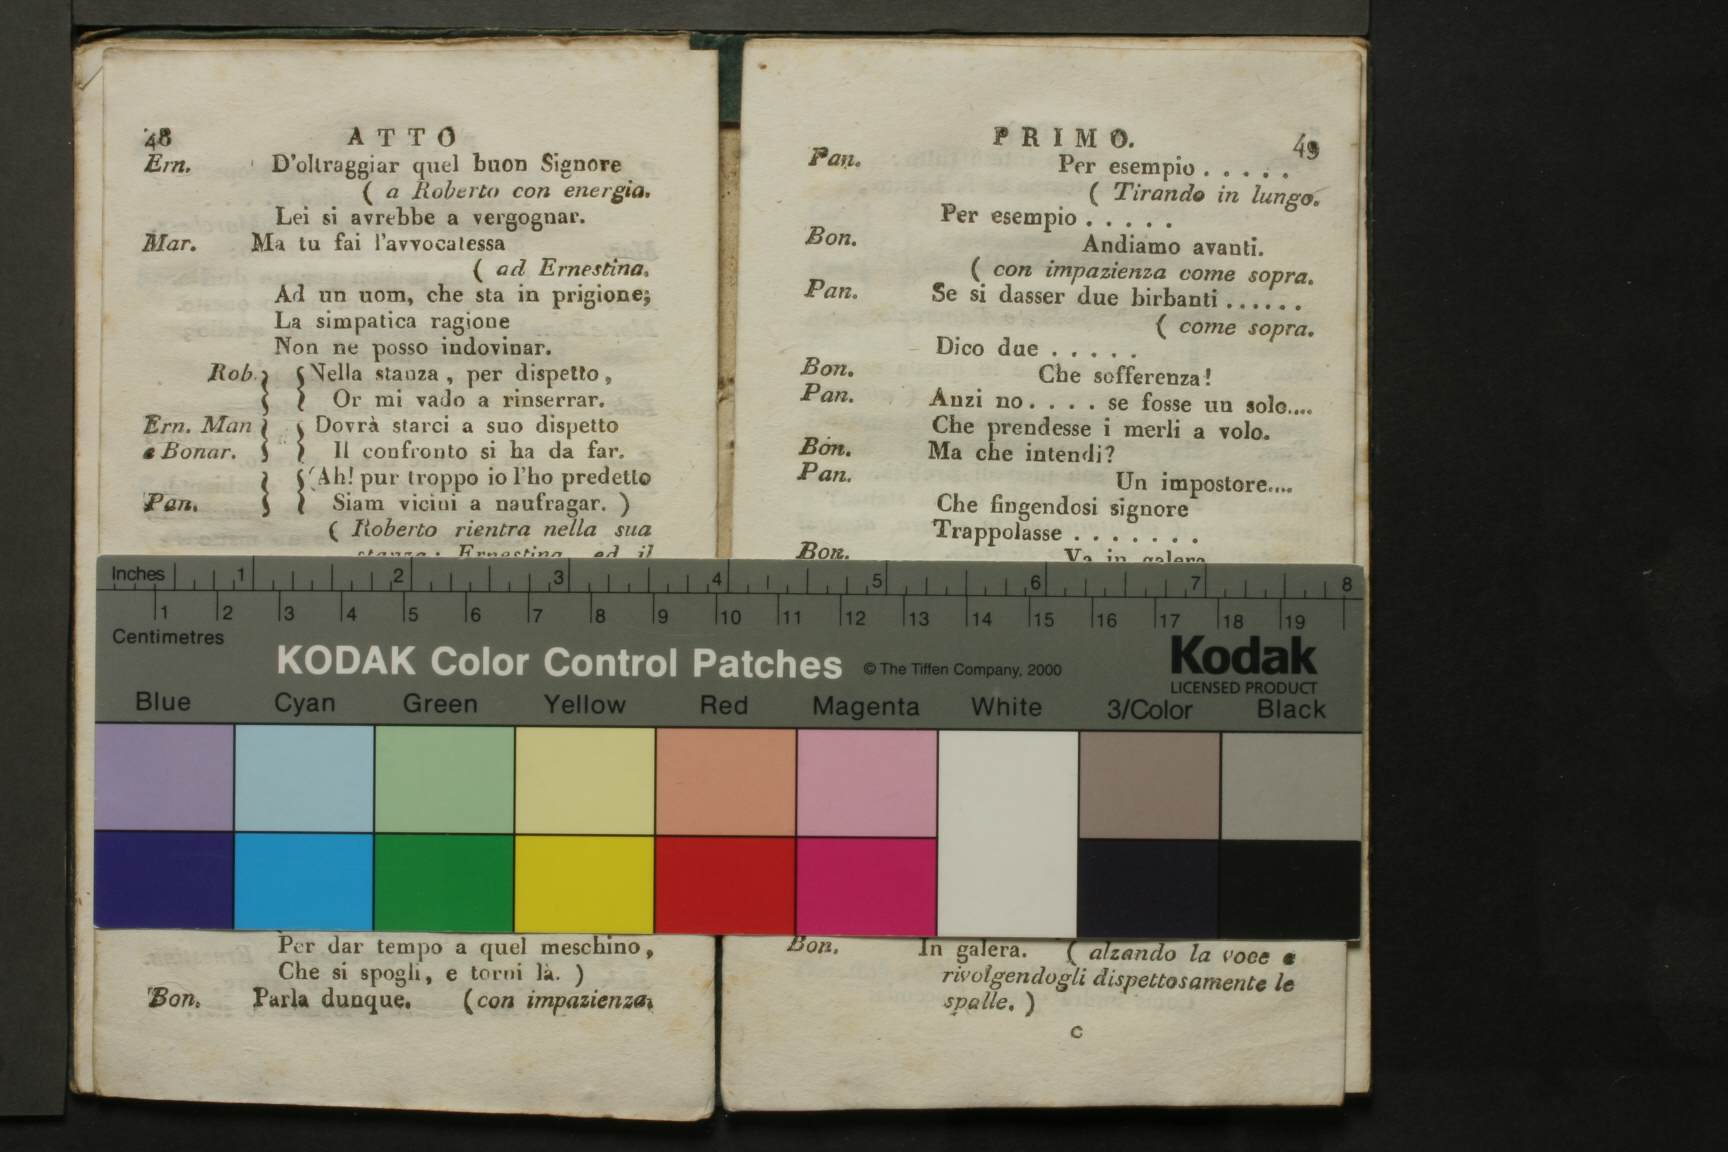 48 ATTO
Ern. D'oltraggiar quel buon Signore
( a Roberto con energia.
Lei si avrebbe a vergognar.
Mar. Ma tu fai l'avvocatessa
( ad Ernestina.
Ad un uom, che sta in prigione;
La simpatica ragione
Non ne posso indovinar.
Rob. Nella stanza, per dispetto,
Or mi vado a rinserrar.
Ern. Man Dovrà starci a suo dispetto
e Bonar. Il confronto si ha da far.
(Ah! pur troppo io l'ho predetto
Pan. Siam vicini a naufragar. )
( Roberto rientra nella sua
stanza: Ernestina, ed il
Per dar tempo a quel meschino,
Che si spogli, e torni là. )
Bon. Parla dunque. (con impazienza.
PRIMO. 49
Pan. Per esempio . . . . .
( Tirando in lungo.
Per esempio . . . . .
Bon. Andiamo avanti.
( con impazienza come sopra.
Pan. Se si dasser due birbanti ......
( come sopra.
Dico due . . . . .
Bon. Che sofferenza!
Pan. Anzi no. . . . se fosse un solo....
Che prendesse i merli a volo.
Bon. Ma che intendi?
Pan. Un impostore....
Che fingendosi signore
Trappolasse . . . . . . .
Bon. Va in galera
Bon. In galera. ( alzando la voce e
rivolgendogli dispettosamente le
spalle. )
C
Inches 1 2 3 4 5 6 7 8
1 2 3 4 5 6 7 8 9 10 11 12 13 14 15 16 17 18 19
Centimetres
KODAK Color Control Patches © The Tiffen Company, 2000
Kodak
LICENSED PRODUCT
Blue Cyan Green Yellow Red Magenta White 3/Color Black